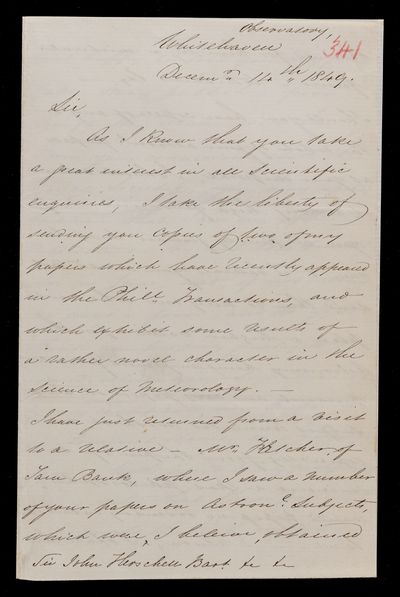 Observatory,
341
Whitehaven
Decemr. 14th. 1849.
Sir,
As I know that you take
a great interest in all scientific
enquiries, I take the liberty of
sending you copies of two of my
papers which have recently appeared
in the Phill. Transactions, and
which exhibit some results of
a rather novel character in the
science of Meteorology. —
I have just returned from a visit
to a relative — Mr. Fletcher, of
Tarn Bank, where I saw a number
of your papers on Astronl. Subjects,
which were, I beleive, obtained
Sir John Herschell Bart &c &c